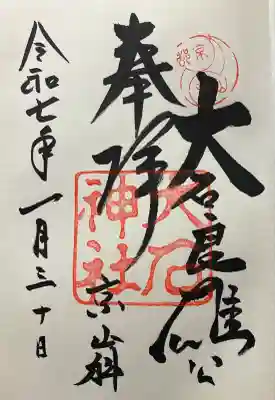 大石良雄公
奉拝
京山科
令和七年一月三十日
大石
神社